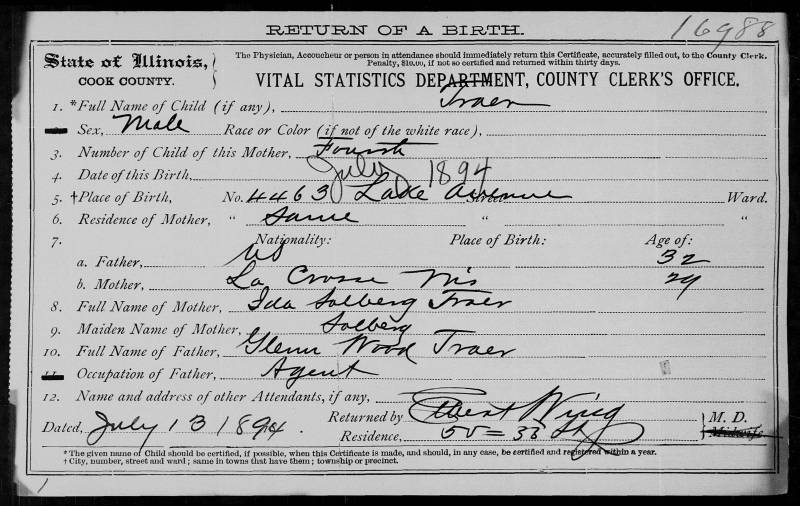 RETURN OF A BIRTH.
16988
State of Illinois,
COOK COUNTY.
The Physician, Accoucheur or person in attendance should immediately return this Certificate, accurately filled out, to the County Clerk.
Penalty, $10.00, if not so certified and returned within thirty days.
VITAL STATISTICS DEPARTMENT, COUNTY CLERK'S OFFICE.
1. *Full Name of Child (if any), Traer
Sex, Male Race or Color (if not of the white race),
3. Number of Child of this Mother, Fourth
4. Date of this Birth, July 1894
5. †Place of Birth, No. 4463 Lake Avenue Street Ward.
6. Residence of Mother, " Same " "
7. Nationality: Place of Birth: Age of:
a. Father, US 32
b. Mother, La Crosse Wis 29
8. Full Name of Mother, Ida Solberg Traer
9. Maiden Name of Mother, Solberg
10. Full Name of Father, Glenn Wood Traer
11. Occupation of Father, Agent
12. Name and address of other Attendants, if any,
Dated, July 13 1894. Returned by Elbert Wing M. D.
Residence, 55=33 St Midwife
*The given name of Child should be certified, if possible, when this Certificate is made, and should, in any case, be certified and registered within a year.
†City, number, street and ward; same in towns that have them; township or precinct.
1